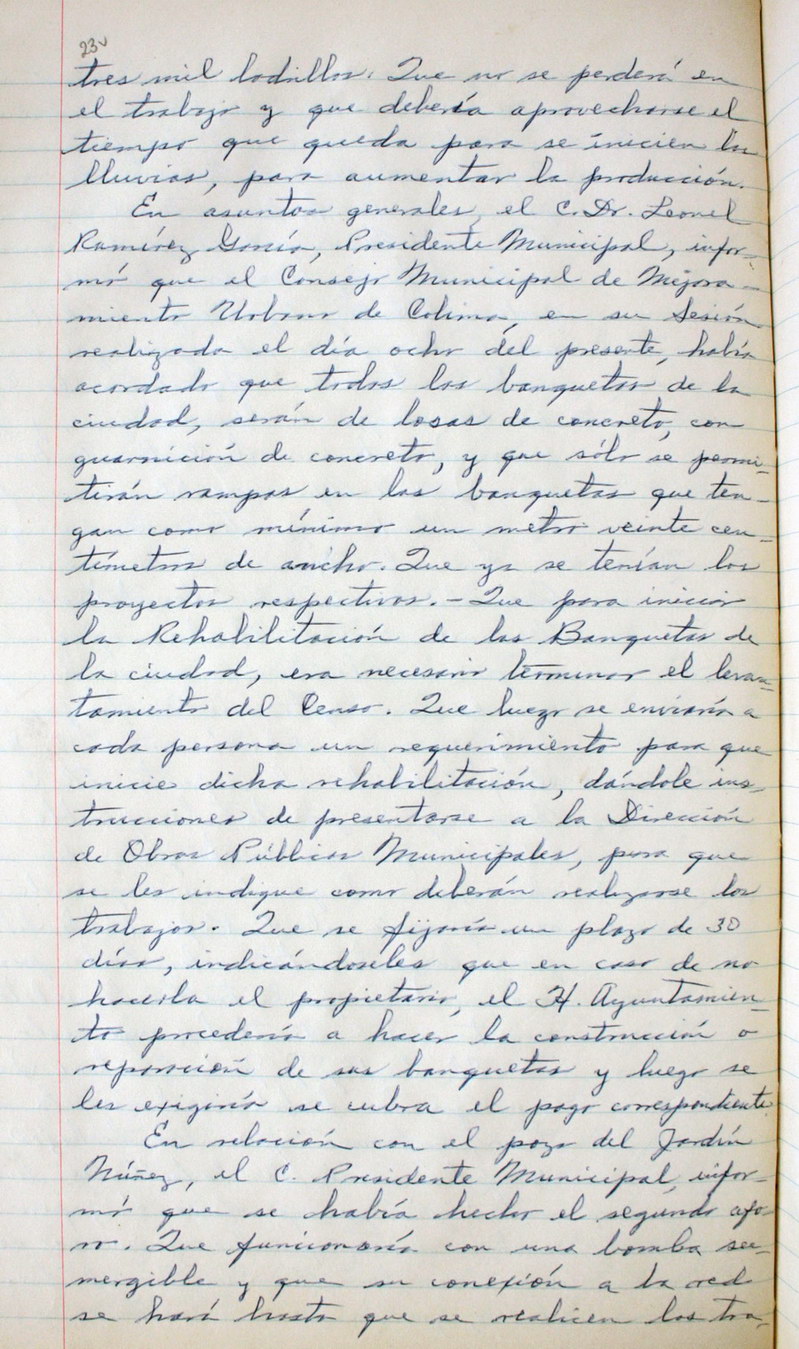 23v
tres mil ladrillos. Que no se perderá en
el trabajo y que debería aprovecharse el
tiempo que queda para se inicien las
lluvias, para aumentar la producción.
En asuntos generales, el C. Dr. Leonel
Ramírez García, Presidente Municipal, infor-
mó que el Consejo Municipal de Mejora-
miento Urbano de Colima, en su Sesión
realizada el día ocho del presente, había
acordado que todas las banquetas de la
ciudad, serán de losas de concreto, con
guarnición de concreto, y que sólo se permi-
tirán rampas en las banquetas que ten-
gan como mínimo un metro veinte cen-
tímetros de ancho. Que ya se tenían los
proyectos respectivos. - Que para iniciar
la Rehabilitación de las Banquetas de
la ciudad, era necesario terminar el levan-
tamiento del Censo. Que luego se enviaría a
cada persona un requerimiento para que
inicie dicha rehabilitación, dándole ins-
trucciones de presentarse a la Dirección
de Obras Públicas Municipales, para que
se les indique como deberán realizarse los
trabajos. Que se fijaría un plazo de 30
días, indicándoseles que en caso de no
hacerla el propietario, el H. Ayuntamien-
to procedería a hacer la construcción o
reparación de sus banquetas y luego se
les exigiría se cubra el pago correspondiente.
En relación con el pozo del Jardín
Núñez, el C. Presidente Municipal, infor-
mó que se había hecho el segundo afo-
ro. Que funcionaría con una bomba su-
mergible y que su conexión a la red
se hará hasta que se realicen los tra-